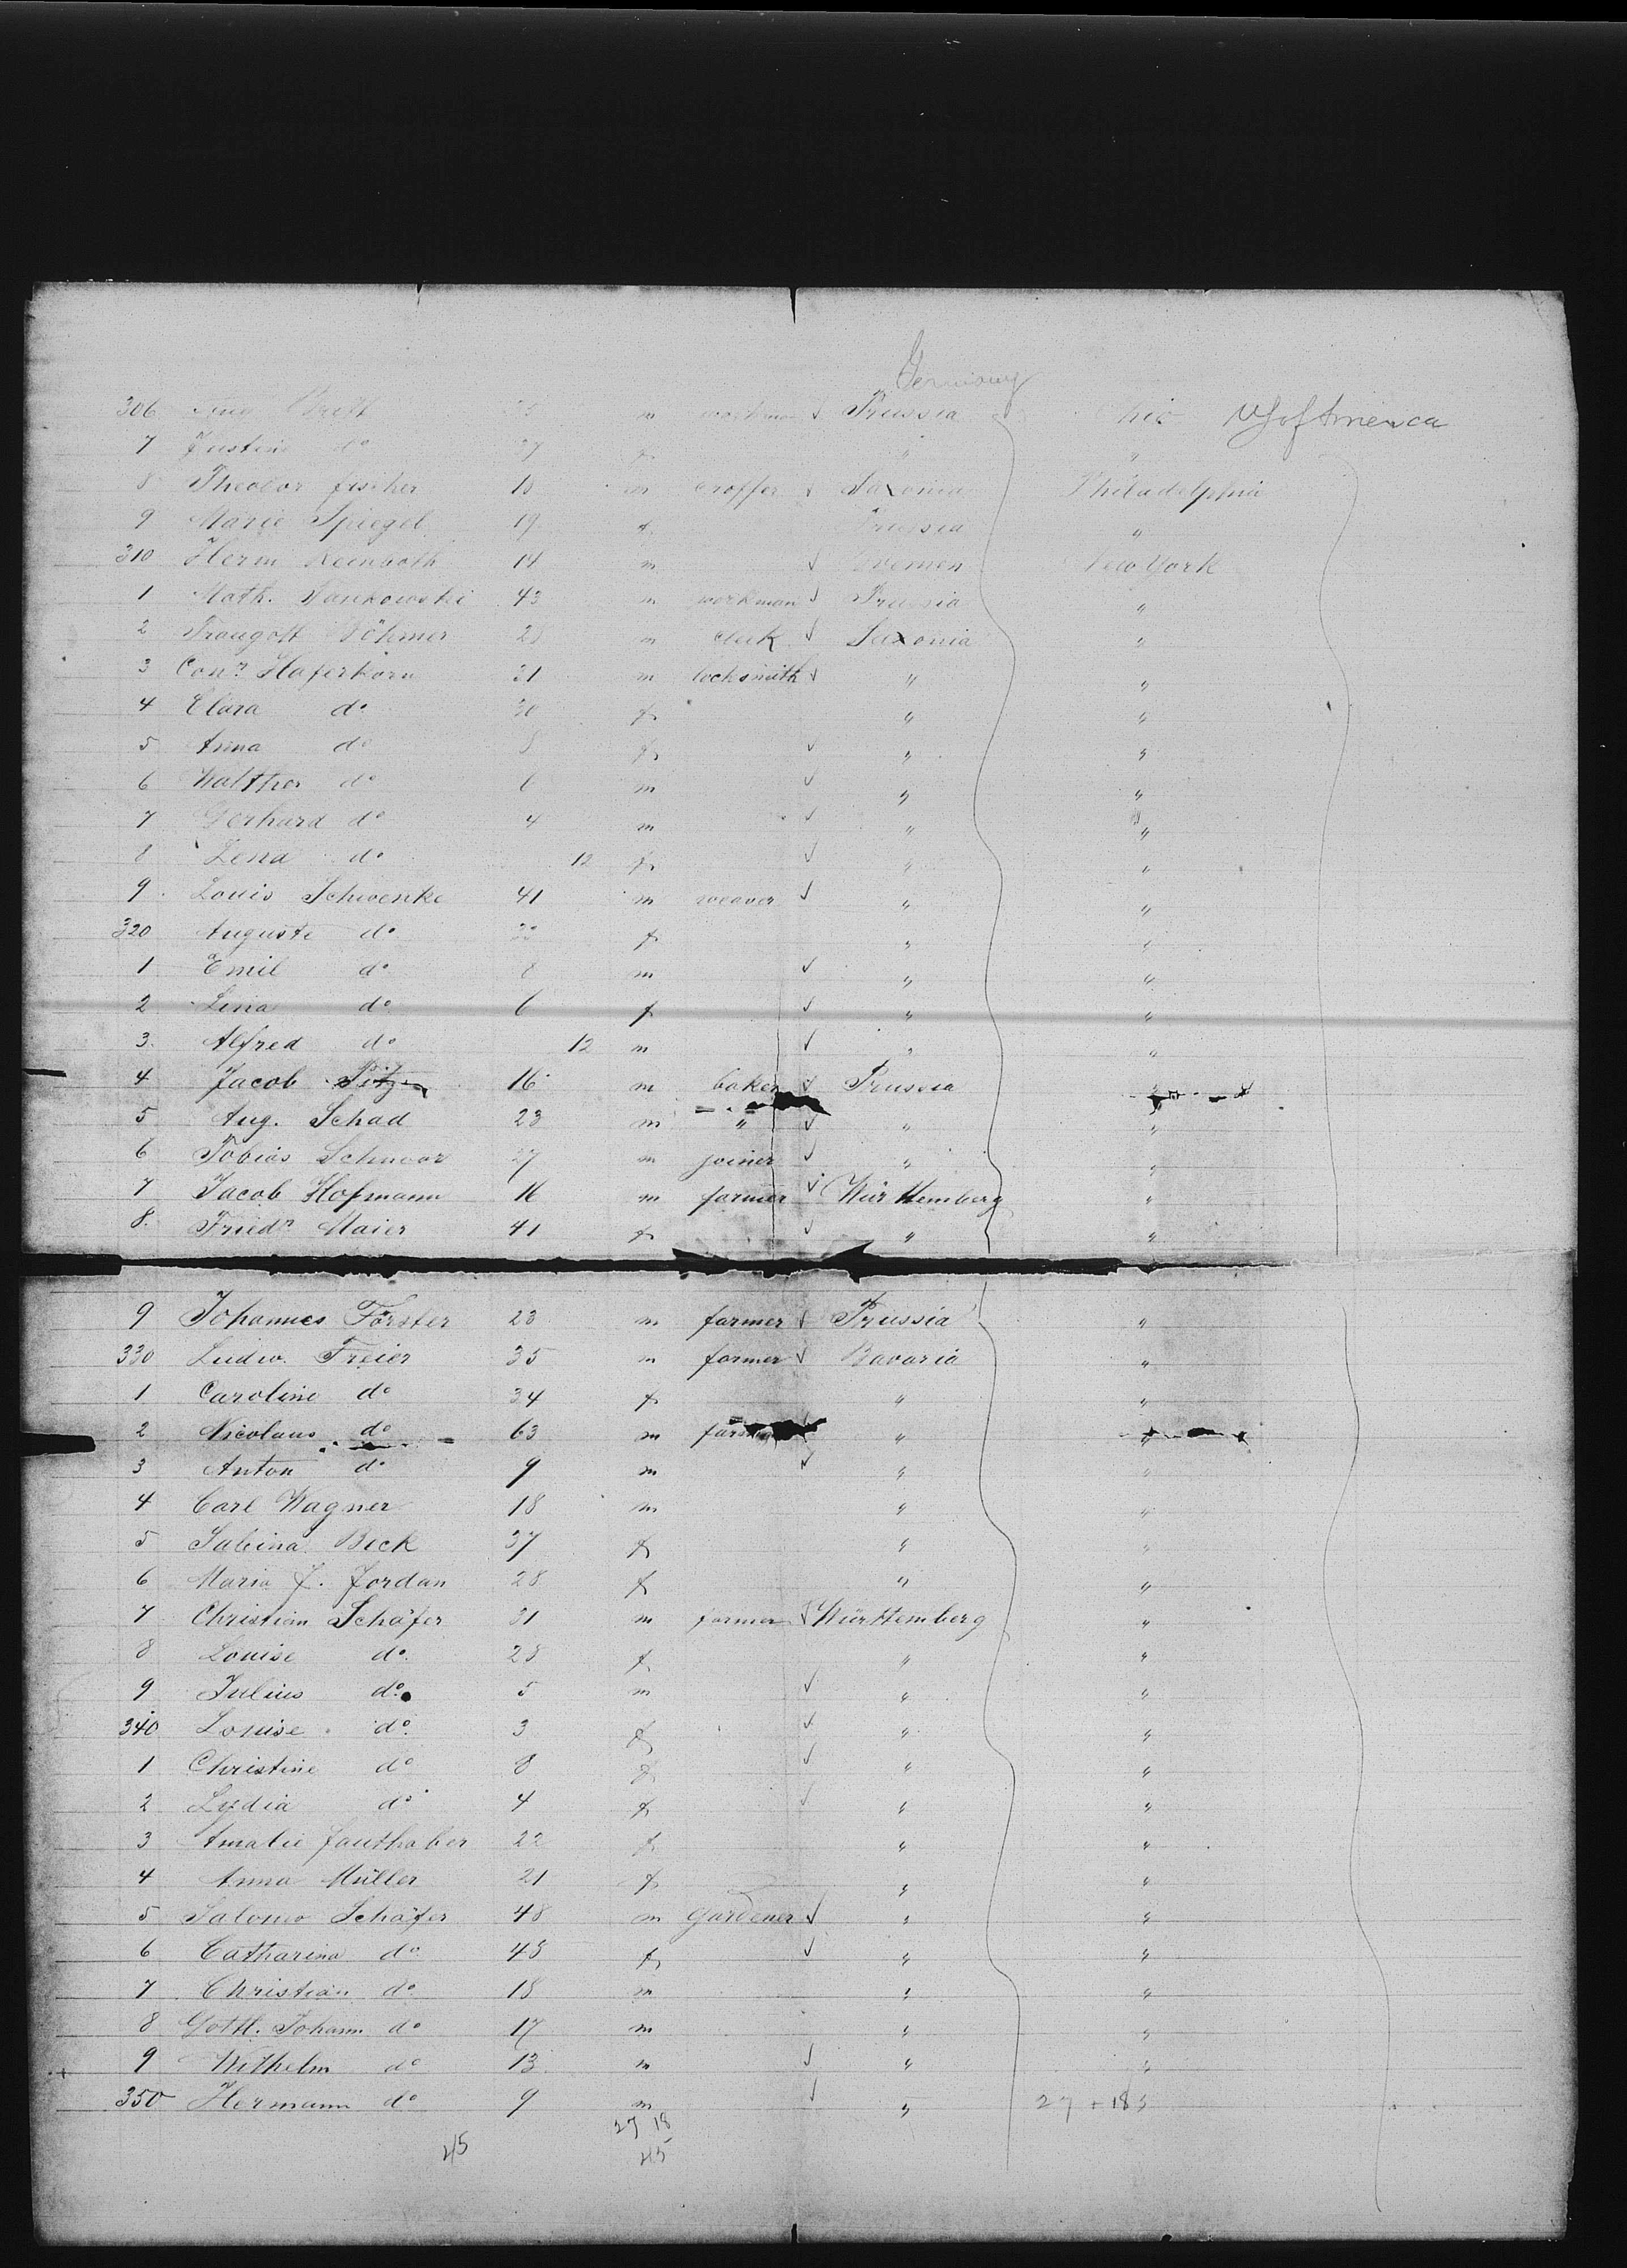 Germany
306 Aug. m workman √ Prussia Ohio U S of America
7 Justine do 27 f " "
8 Theodor Fischer 18 m √ Saxonia Philadelphia
9 Marie Spiegel 19 f Prussia "
310 Herm Reinboth 14 m √ Bremen New York
1 Math. Jankowski 43 m workman √ Prussia "
2 Traugott Böhmer 28 m clerk √ Saxonia "
3 Conr. Haferkorn 31 m locksmith √ " "
4 Clara do 30 f " "
5 Anna do 8 f √ " "
6 Walther do 6 m √ " "
7 Gerhard do 4 m √ " "
8 Lena do 12 f √ " "
9 Louis Schwenke 41 m weaver √ " "
320 Auguste do f " "
1 Emil do 8 m √ " "
2 Lina do 6 f √ " "
3 Alfred do 12 m √ " "
4 Jacob 16 m baker √ Prussia "
5 Aug. Schad 23 m " √ " "
6 Tobias Schnoor 27 m joiner √ " "
7 Jacob Hofmann 16 m farmer √ Württemberg "
8 Friedr Maier 41 f √ " "
9 Johannes Förster 23 m farmer √ Prussia "
330 Ludw. Freier 35 m farmer √ Bavaria "
1 Caroline do 34 f " "
2 Nicolaus do 63 m farmer " "
3 Anton do 9 m √ " "
4 Carl Wagner 18 m " "
5 Sabina Beck 37 f " "
6 Maria J. Jordan 28 f " "
7 Christian Schäfer 31 m farmer √ Württemberg "
8 Louise do 28 f " "
9 Julius do 5 m √ " "
340 Louise do 3 f √ " "
1 Christine do 8 f √ " "
2 Lydia do 4 f √ " "
3 Amalie Fauthaber 22 f " "
4 Anna Müller 21 f " "
5 Salomo Schäfer 48 m Gardener √ " "
6 Catharina do 48 f √ " "
7 Christian do 18 m " "
8 Gottl. Johann do 17 m " "
9 Wilhelm do 13 m √ " "
350 Hermann do 9 m √ " 27 + 18 "
27 18
45 45